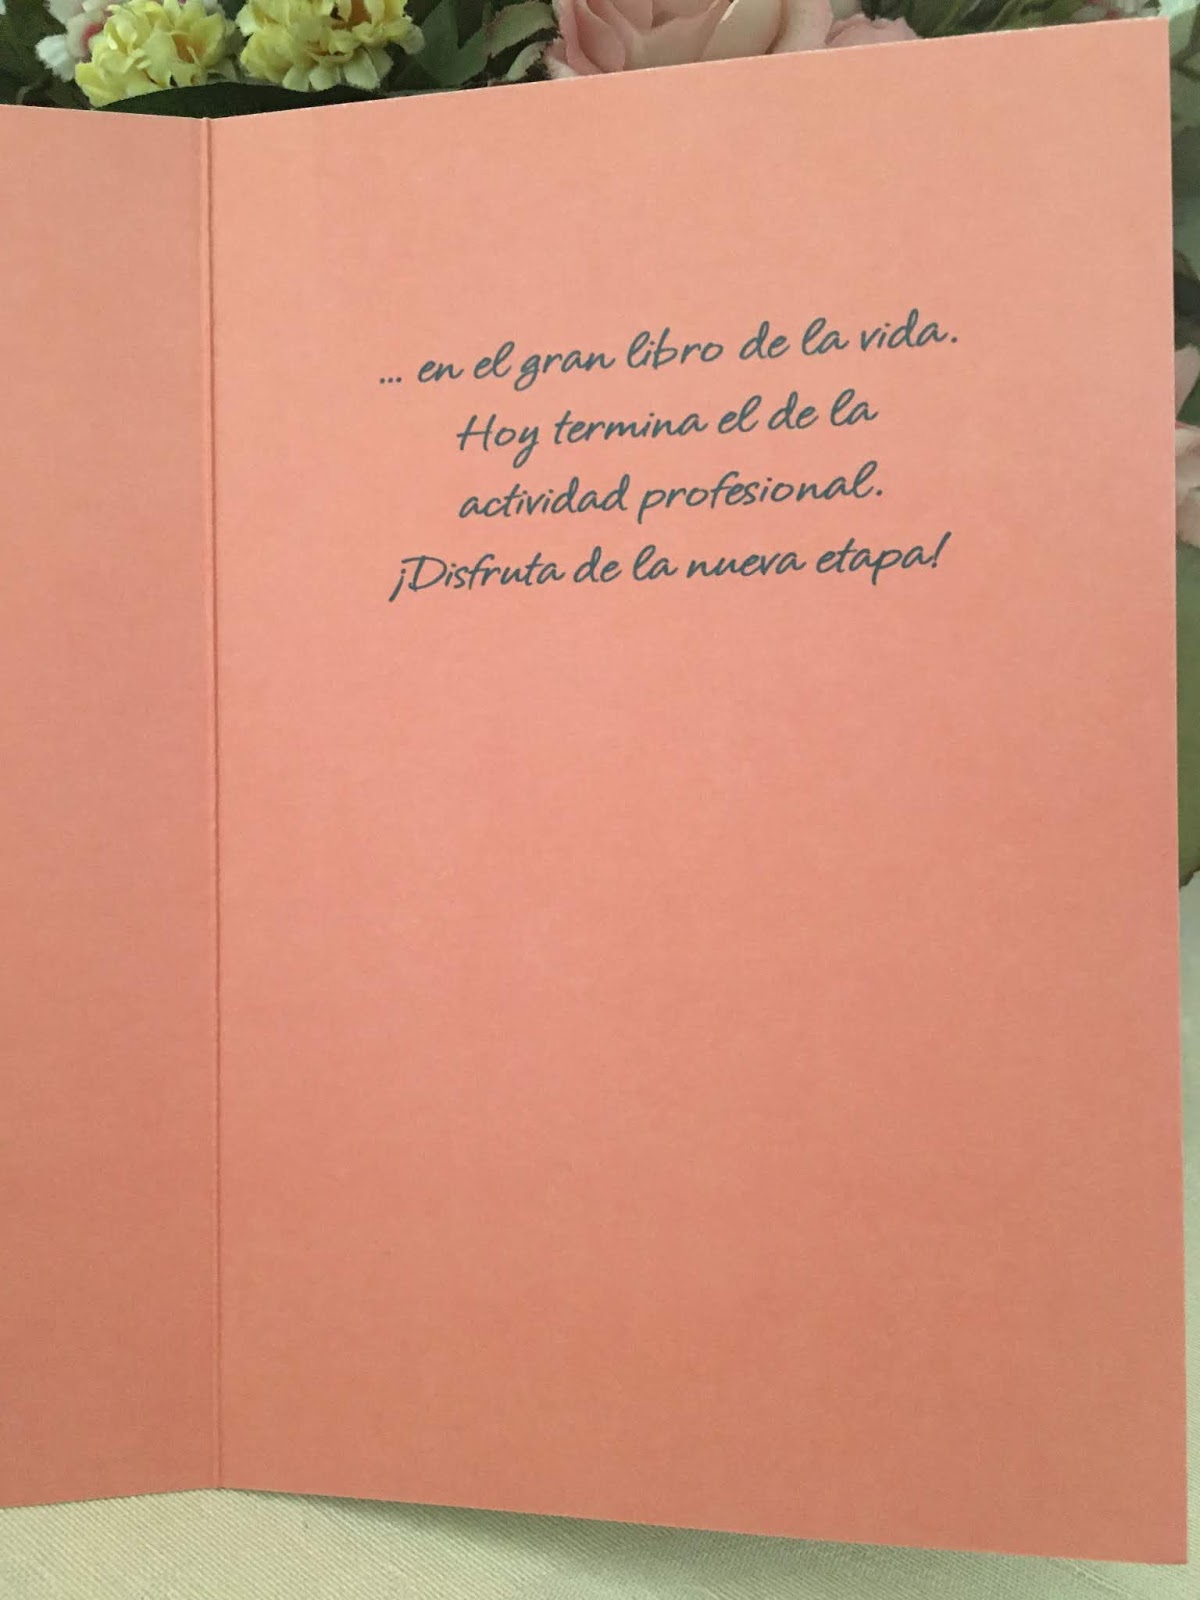 ... en el gran libro de la vida.
Hoy termina el de la
actividad profesional.
¡Disfruta de la nueva etapa!